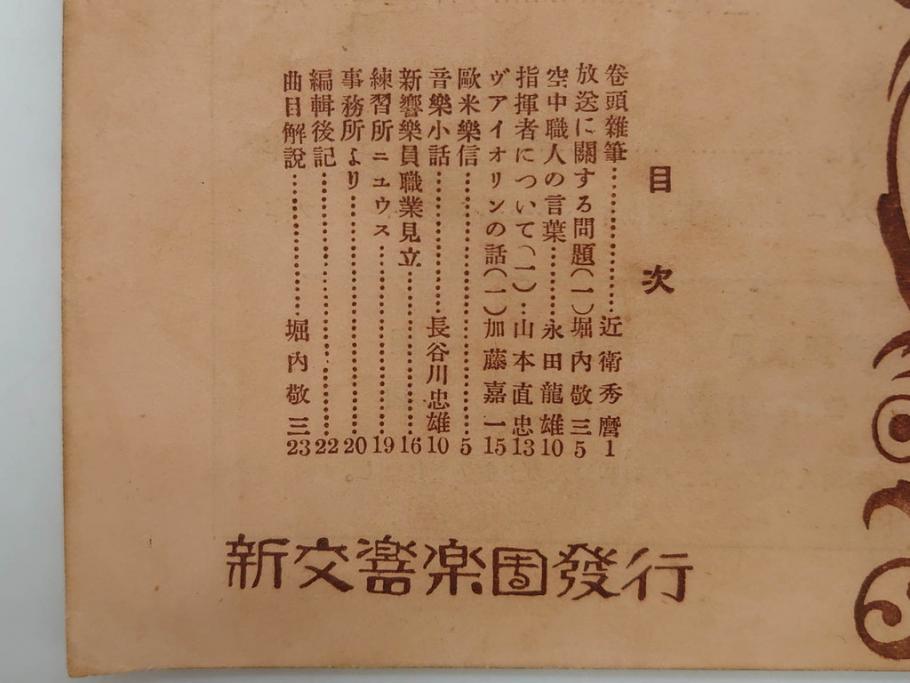 目次
卷頭雜筆……………近衞秀麿 1
放送に關する問題(一)堀内敬三 5
空中職人の言葉………永田龍雄 10
指揮者について(一)…山本直忠 13
ヴアイオリンの話(一)加藤嘉一 15
歐米樂信……………………………… 5
音樂小話………………長谷川忠雄 10
新響樂員職業見立…………………… 16
練習所ニユウス……………………… 19
事務所より…………………………… 20
編輯後記……………………………… 22
曲目解説………………堀内敬三 23
新交響楽団發行